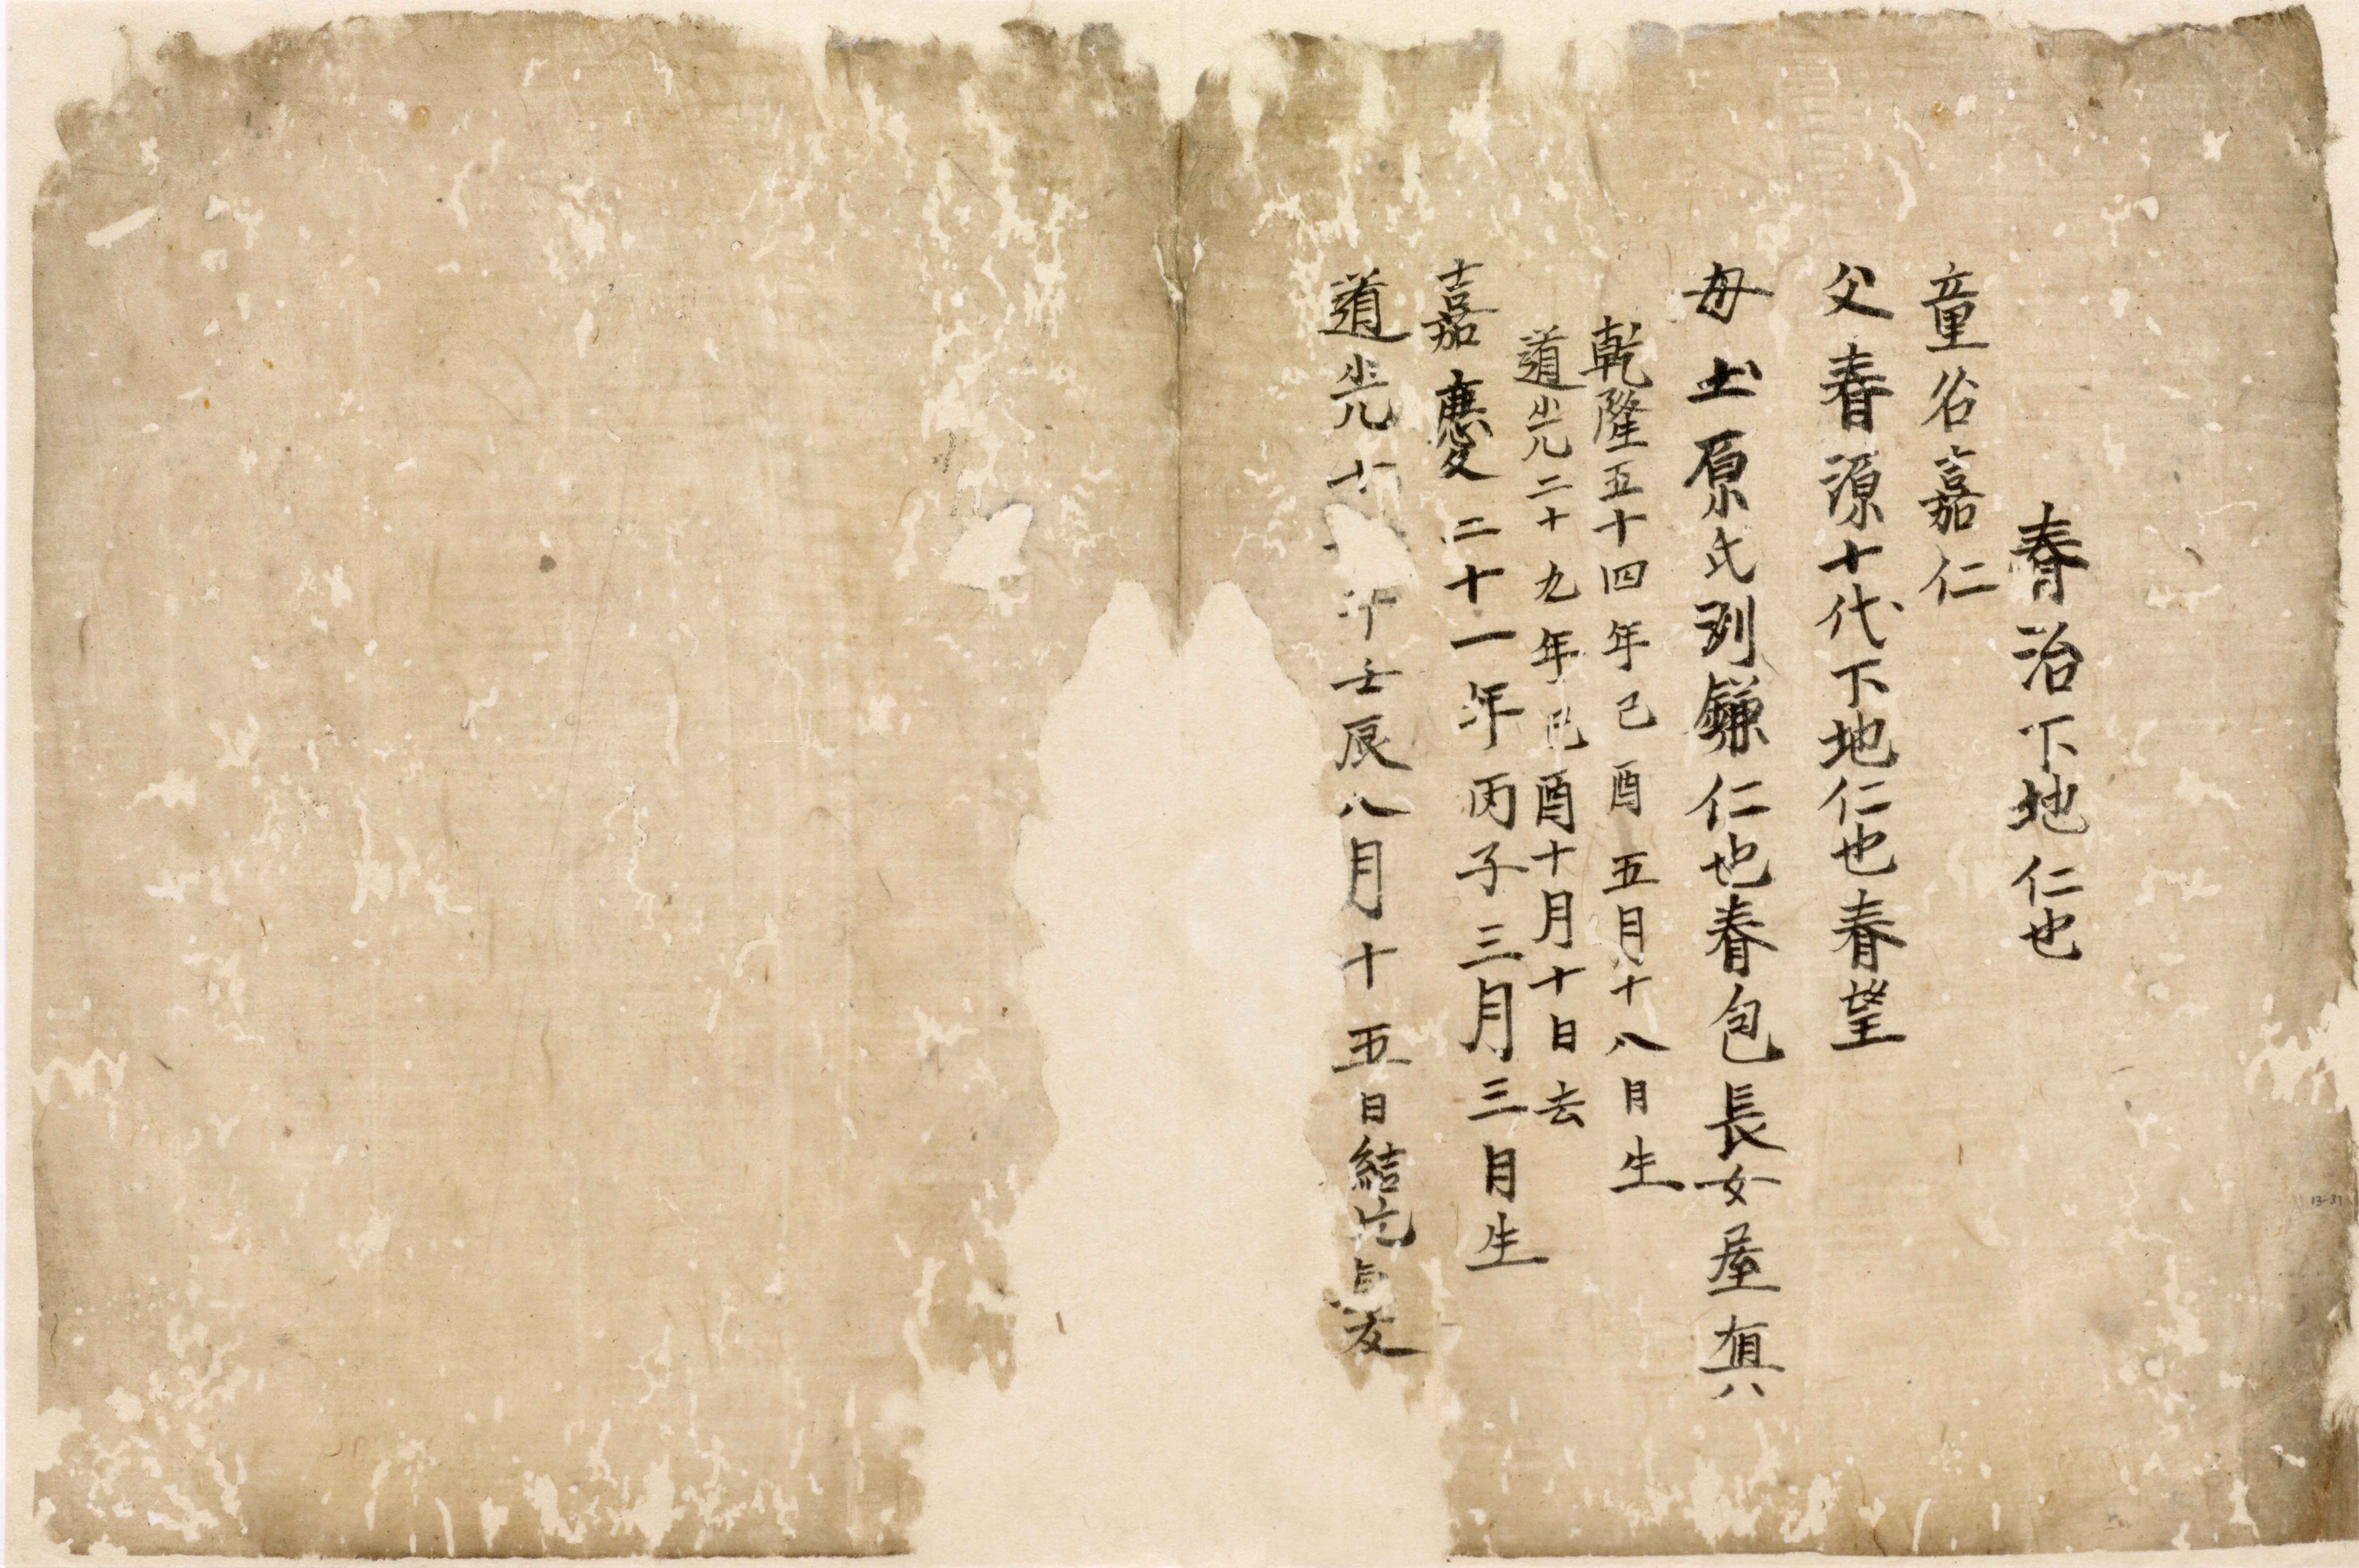 春治下地仁也
童名嘉仁
父春源十代下地仁也春望
母土原氏渕鎌仁也春包長女屋真
乾隆五十四年己酉五月十八日生
道光二十九年己酉十月十日去
嘉慶二十一年丙子三月三日生
道光十年壬辰八月十五日結